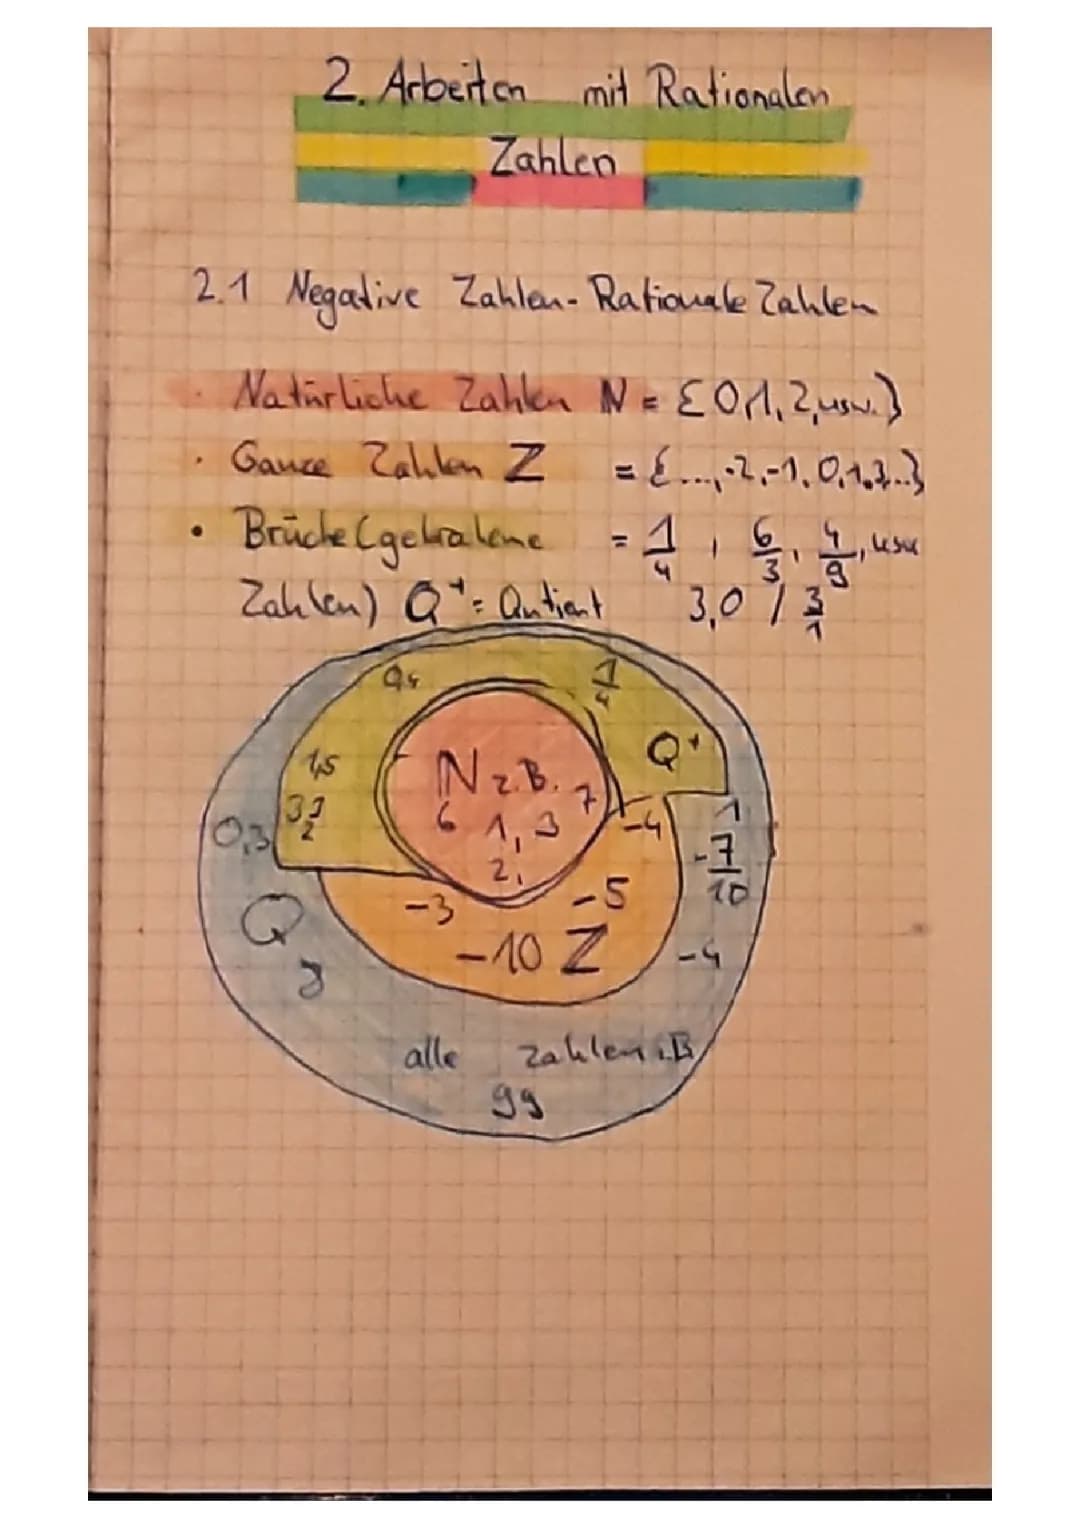 2. Arbeiten mit Rationalen
Zahlen
2.1 Negative Zahlen - Rationale Zahlen
· Natürliche Zahlen N = {0,1,2,usw.}
· Ganze Zahlen Z = {...,-2,-1,0,1,2...}
• Brüche (gebrochene = 1/4, 6/3, 4/9, usw
Zahlen) Q⁺ = Qutient 3,0 / 3/1
1/4
Q⁺
1,5
N z.B. 7
6 1, 3
2,
-4
0,3
-7/10
-3 -5
Q
-10 Z -4
alle Zahlen z.B
99